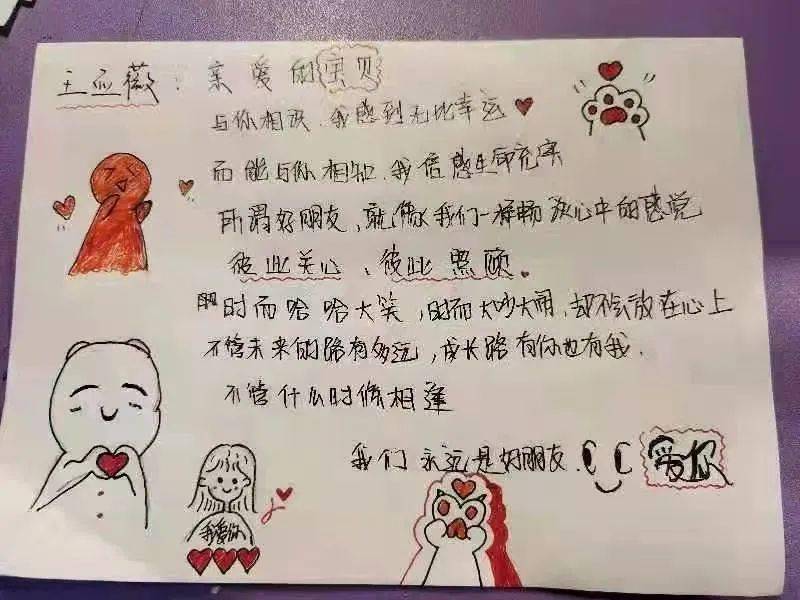 王亚薇：亲爱的宝贝
与你相识、我感到无比幸运
而能与你相知、我倍感生命充实
所谓好朋友，就像我们一样畅谈心中的感觉
彼此关心、彼此照顾。
时而哈哈大笑，时而大吵大闹，却不会放在心上
不管未来的路有多远，成长路有你也有我.
不管什么时候相逢
我们永远是好朋友. 爱你
我爱你